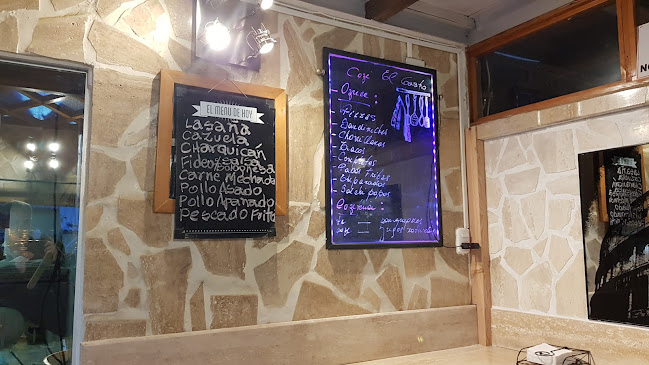 EL MENU DE HOY
Lasaña
Cazuela
CHarquicán
Carne Mechada
Pollo Asado
Pollo Apanado
Pescado Frito
Ofrece :
- Pizzas
- Sandwiches
- Chorrillanas
- Tacos
- Completos
- Papas Fritas
- Empanadas
- Salchipapas